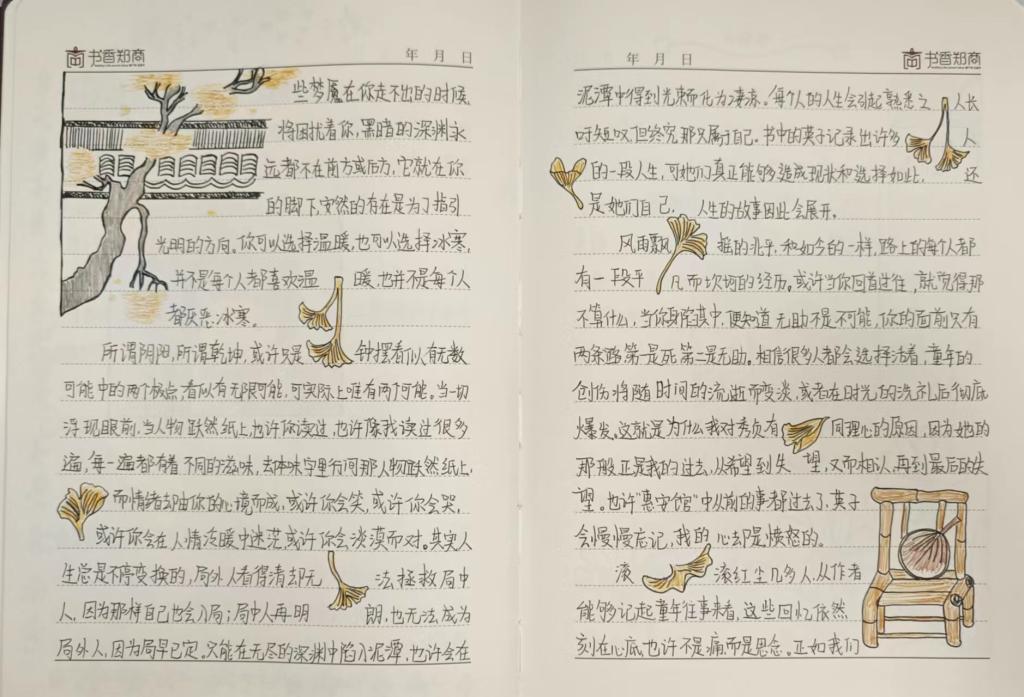 书香知商
年 月 日
些梦魇在你走不出的时候,
将困扰着你,黑暗的深渊永
远都不在前方或后方,它就在你
的脚下,安然的存在是为了指引
光明的方向。你可以选择温暖,也可以选择冰寒,
并不是每个人都喜欢温暖,也并不是每个人
都厌恶冰寒。
所谓阴阳,所谓乾坤,或许只是钟摆看似有无数
可能中的两个极点,看似有无限可能,可实际上唯有两个可能。当一切
浮现眼前,当人物跃然纸上,也许你读过,也许像我读过很多
遍,每一遍都有着不同的滋味,去体味字里行间那人物跃然纸上,
而情绪却由你的心境而成,或许你会笑,或许你会哭,
或许你会在人情冷暖中迷茫或许你会淡漠而对。其实人
生总是不停变换的,局外人看得清却无法拯救局中
人,因为那样自己也会入局;局中人再明朗,也无法成为
局外人,因为局早已定。只能在无尽的深渊中陷入泥潭,也许会在
年 月 日
书香知商
泥潭中得到光束而化为凄凉。每个人的人生会引起熟悉之人长
吁短叹但终究那只属于自己。书中的英子记录出许多人
的一段人生,可她们真正能够造成现状和选择如此,还
是她们自己.人生的故事因此会展开。
风雨飘摇的北平,和如今的一样,路上的每个人都
有一段平凡而坎坷的经历。或许当你回首过往,就觉得那
不算什么,当你身陷其中,便知道无助不是不可能,你的面前只有
两条路第一是死第二是无助。相信很多人都会选择活着,童年的
创伤将随时间的流逝而变淡,或者在时光的洗礼后彻底
爆发。这就是为什么我对秀贞有同理心的原因,因为她的
那般正是我的过去,从希望到失望,又而相认,再到最后的失
望。也许“惠安馆”中从前的事都过去了,英子
会慢慢忘记,我的心却是愤怒的。
滚滚红尘几多人,从作者
能够记起童年往事来看,这些回忆依然
刻在心底,也许不是痛而是思念。正如我们